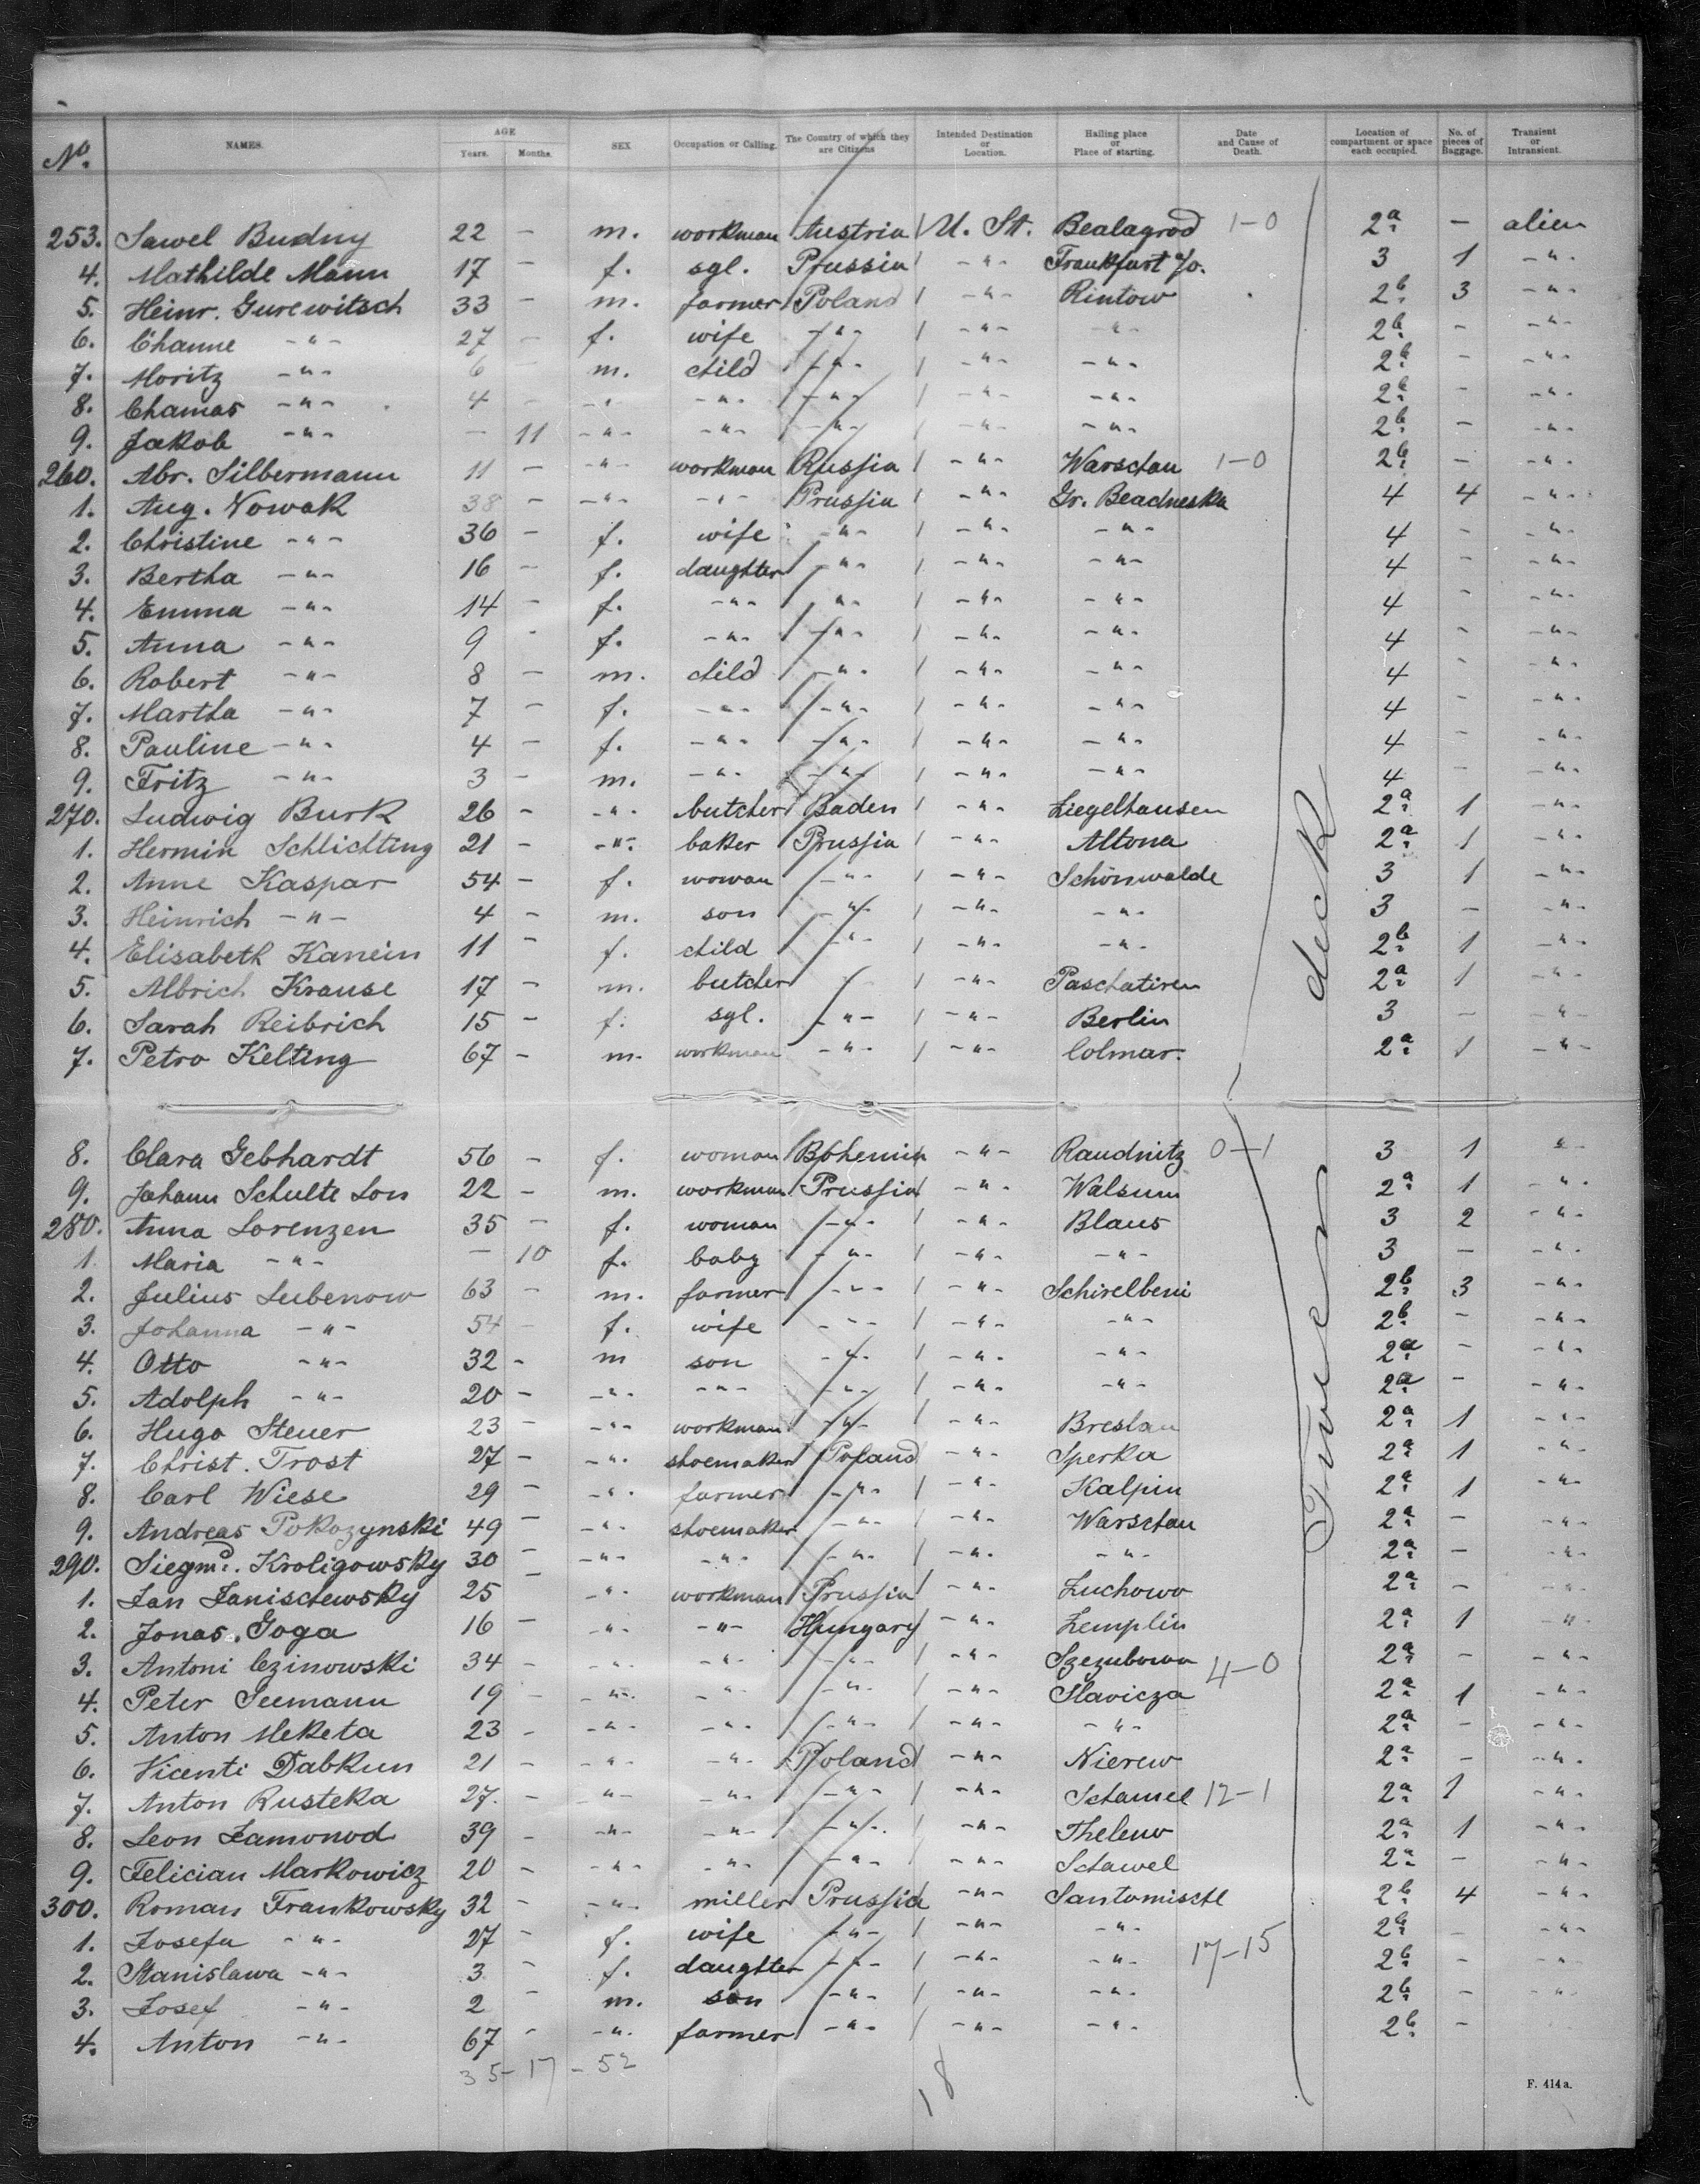 No. NAMES. AGE Years. Months. SEX Occupation or Calling. The Country of which they are Citizens Intended Destination or Location. Hailing place or Place of starting. Date and Cause of Death. Location of compartment or space each occupied. No. of pieces of Baggage. Transient or Intransient.
253. Sawel Budny 22 - m. workman Austria U. St. Bealagrod 1-0 2a - alien
4. Mathilde Mann 17 - f. sgl. Prussia -"- Frankfurt a/o. 3 1 -"-
5. Heinr. Gurewitsch 33 - m. farmer Poland -"- Rintow 2b 3 -"-
6. Channe -"- 27 - f. wife -"- -"- -"- 2b - -"-
7. Moritz -"- 6 m. child -"- -"- -"- 2b - -"-
8. Chamas -"- 4 - -"- -"- -"- -"- -"- 2b - -"-
9. Jakob -"- - 11 -"- -"- -"- -"- -"- 2b - -"-
260. Abr. Silbermann 11 - -"- workman Russia -"- Warschau 1-0 2b - -"-
1. Aug. Nowak 38 - -"- -"- Prussia -"- Gr. Beadneska 4 4 -"-
2. Christine -"- 36 - f. wife -"- -"- -"- 4 - -"-
3. Bertha -"- 16 - f. daughter -"- -"- -"- 4 - -"-
4. Emma -"- 14 - f. -"- -"- -"- -"- 4 - -"-
5. Anna -"- 9 - f. -"- -"- -"- -"- 4 - -"-
6. Robert -"- 8 - m. child -"- -"- -"- 4 - -"-
7. Martha -"- 7 - f. -"- -"- -"- -"- 4 - -"-
8. Pauline -"- 4 - f. -"- -"- -"- -"- 4 - -"-
9. Fritz -"- 3 - m. -"- -"- -"- -"- 4 - -"-
270. Ludwig Burk 26 - -"- butcher Baden -"- Ziegelhausen 2a 1 -"-
1. Hermin Schlichting 21 - -"- baker Prussia -"- Altona 2a 1 -"-
2. Anne Kaspar 54 - f. wowan -"- -"- Schönwalde 3 1 -"-
3. Heinrich -"- 4 - m. son -"- -"- -"- 3 - -"-
4. Elisabeth Kanein 11 - f. child -"- -"- -"- 2b 1 -"-
5. Albrich Krause 17 - m. butcher -"- -"- Paschatiren 2a 1 -"-
6. Sarah Reibrich 15 - f. sgl. -"- -"- Berlin 3 - -"-
7. Petro Kelting 67 - m. workman -"- -"- Colmar. 2a 1 -"-
8. Clara Gebhardt 56 - f. woman Bohemia -"- Raudnitz 0-1 3 1 -"-
9. Johann Schulte Lon 22 - m. workman Prussia -"- Walsum 2a 1 -"-
280. Anna Lorenzen 35 - f. woman -"- -"- Blaus 3 2 -"-
1. Maria -"- - 10 f. baby -"- -"- -"- 3 - -"-
2. Julius Lubenow 63 - m. farmer -"- -"- Schirelbeni 2b 3 -"-
3. Johanna -"- 54 - f. wife -"- -"- -"- 2b - -"-
4. Otto -"- 32 - m son -"- -"- -"- 2a - -"-
5. Adolph -"- 20 - -"- -"- -"- -"- -"- 2a - -"-
6. Hugo Steuer 23 - -"- workman -"- -"- Breslau 2a 1 -"-
7. Christ. Trost 27 - -"- shoemaker Poland -"- Sperka 2a 1 -"-
8. Carl Wiese 29 - -"- farmer -"- -"- Kalpin 2a 1 -"-
9. Andreas Pokozynski 49 - -"- shoemaker -"- -"- Warschau 2a - -"-
290. Siegmd. Kroligowsky 30 - -"- -"- -"- -"- -"- 2a - -"-
1. Jan Janischewsky 25 - -"- workman Prussia -"- Zuchowo 2a - -"-
2. Jonas Goga 16 - -"- -"- Hungary -"- Zemplin 2a 1 -"-
3. Antoni Czinowski 34 - -"- -"- -"- -"- Szezubowa 4-0 2a - -"-
4. Peter Seemann 19 - -"- -"- -"- -"- Slavicza 2a 1 -"-
5. Anton Meketa 23 - -"- -"- -"- -"- -"- 2a - -"-
6. Vicenti Dabkun 21 - -"- -"- Poland -"- Nierew 2a - -"-
7. Anton Rusteka 27. - -"- -"- -"- -"- Schamel 12-1 2a 1 -"-
8. Leon Zamonod 39 - -"- -"- -"- -"- Thelenw 2a 1 -"-
9. Felician Markowicz 20 - -"- -"- -"- -"- Schawel 2a - -"-
300. Roman Frankowsky 32 - -"- miller Prussia -"- Santomischl 2b 4 -"-
1. Josefa -"- 27 - f. wife -"- -"- -"- 2b - -"-
2. Stanislawa -"- 3 - f. daughter -"- -"- -"- 17-15 2b - -"-
3. Josef -"- 2 - m. son -"- -"- -"- 2b - -"-
4. Anton -"- 67 - -"- farmer -"- -"- -"- 2b -
35-17-52
18
Tween deck
F. 414a.